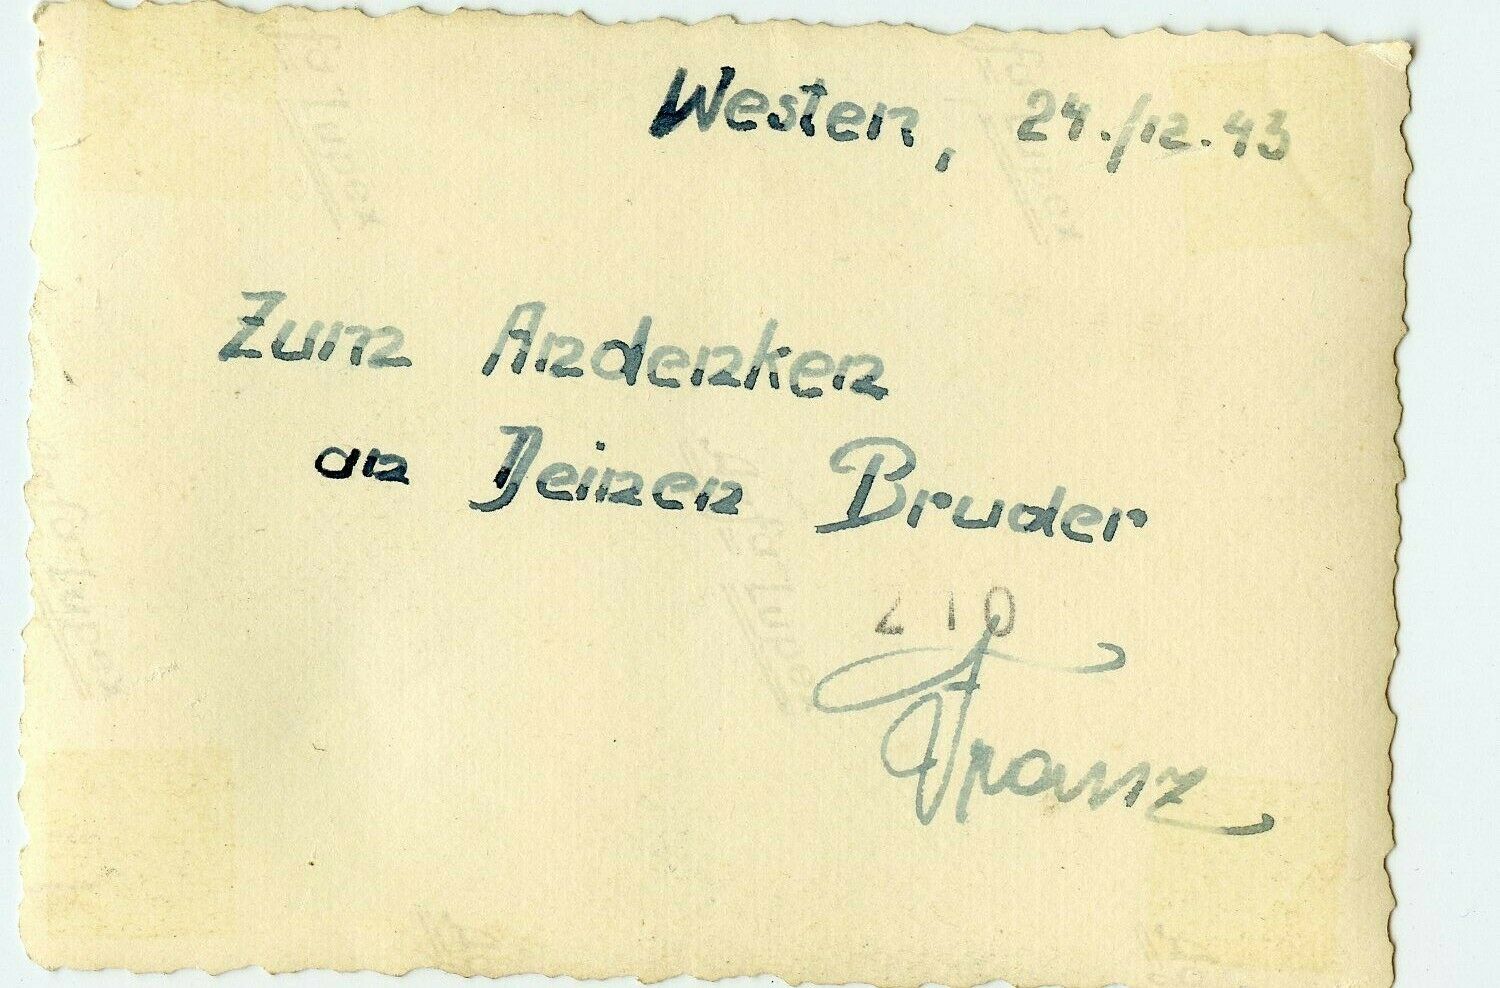 Westen, 24./12.43
Zum Andenken
an Deinen Bruder
210
Franz